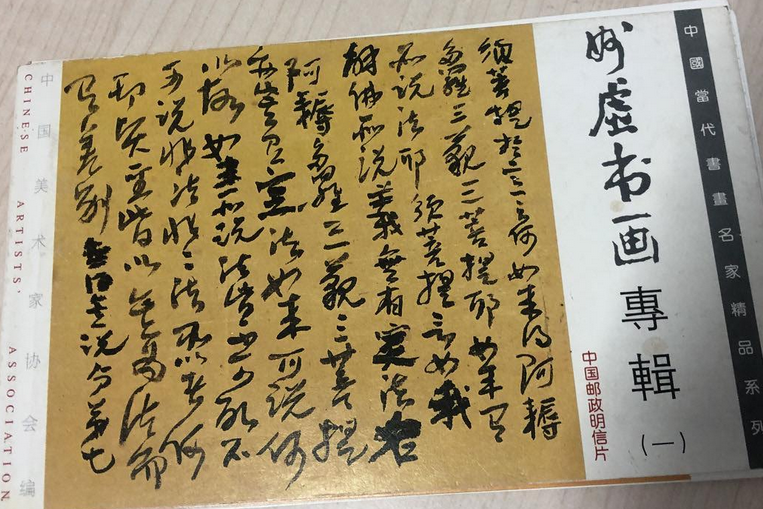 中國當代書畫名家精品系列
妙虚书画專輯
(一)
中国邮政明信片
须菩提於意云何如来得阿耨
多羅三藐三菩提耶如来有
所说法耶须菩提言如我
解佛所说義無有定法名
阿耨多羅三藐三菩提
亦無有定法如来可说何
以故如来所说法皆不可取不
可说非法非非法所以者何
一切贤圣皆以無為法而
有差别 無得無说分第七
中国美术家协会编
CHINESE ARTISTS' ASSOCIATION